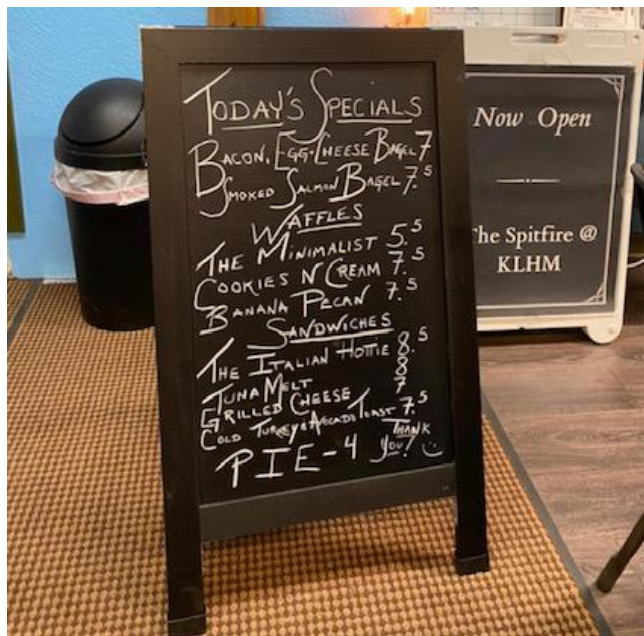 TODAY'S SPECIALS
BACON, EGG+CHEESE BAGEL 7
SMOKED SALMON BAGEL 7.5
WAFFLES
THE MINIMALIST 5.5
COOKIES N CREAM 7.5
BANANA PECAN 7.5
SANDWICHES
THE ITALIAN HOTTIE 8.5
TUNA MELT 8
GRILLED CHEESE 7
COLD TURKEY & AVOCADO TOAST 7.5
PIE-4
THANK
YOU!
Now Open
The Spitfire @
KLHM